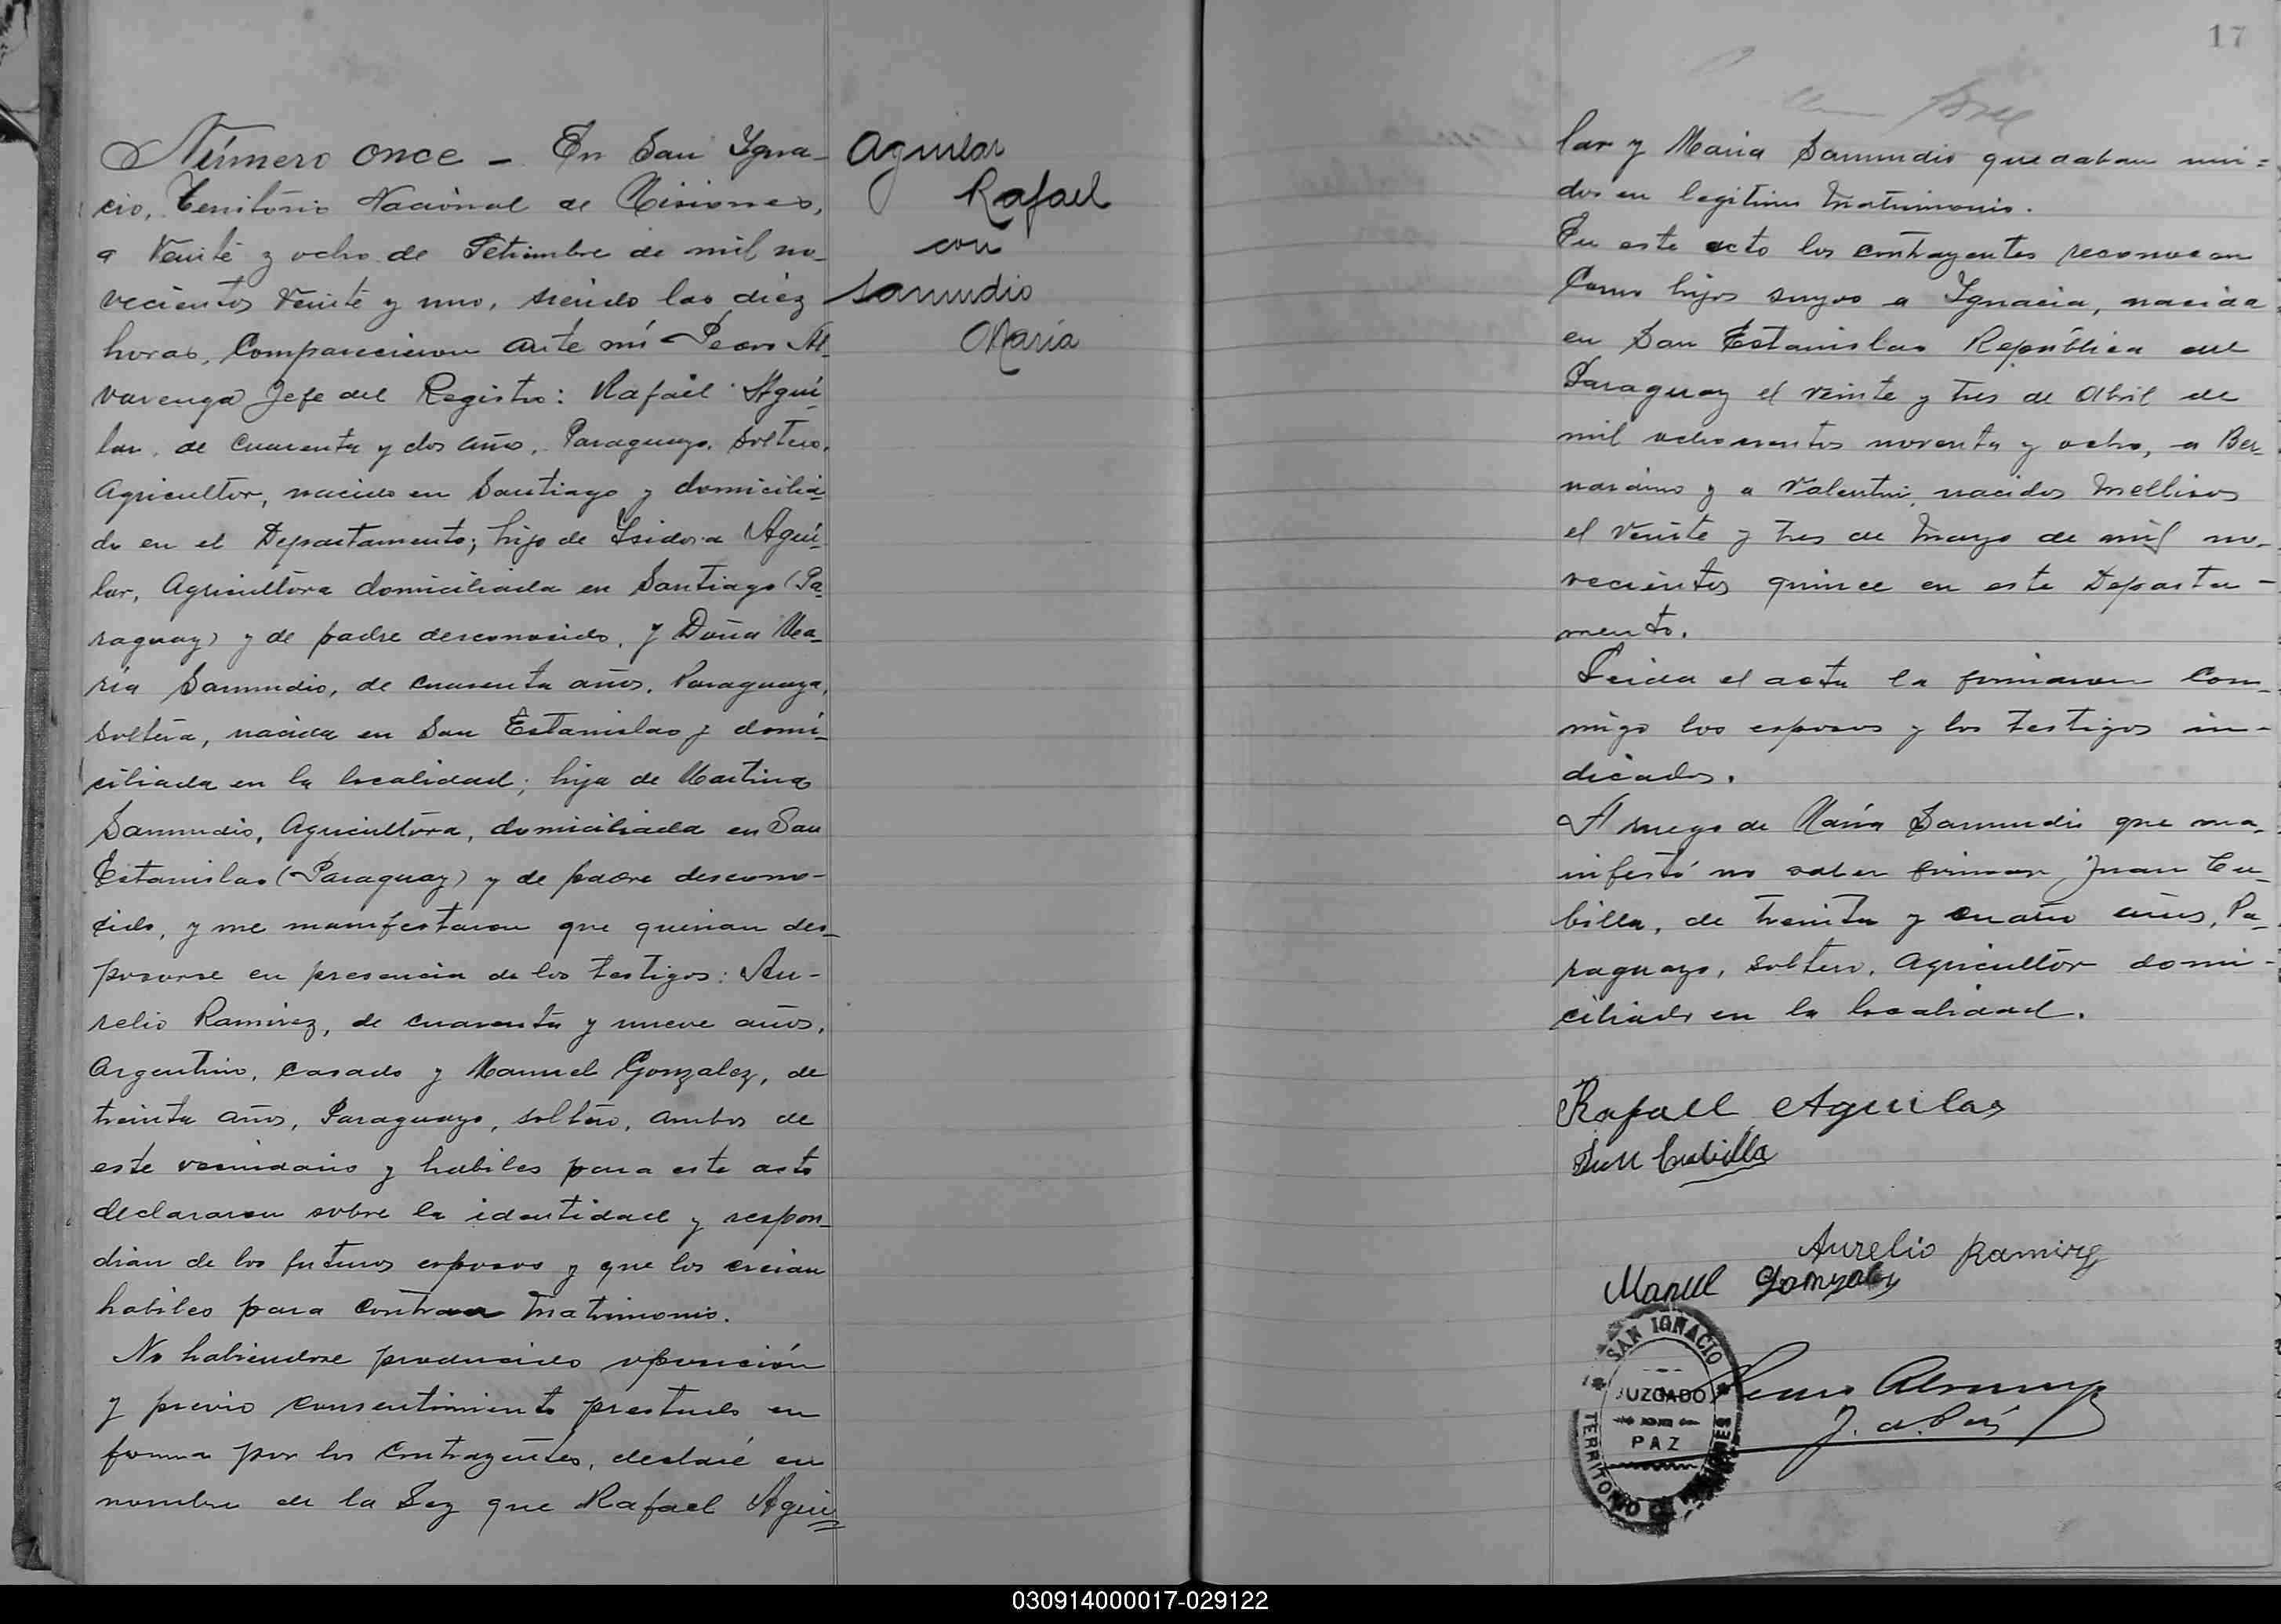 17
Número once - En San Ygna-
cio, Territorio Nacional de Misiones,
a Veinte y ocho de Setiembre de mil no-
vecientos Veinte y uno, siendo las diez
horas, Comparecieron ante mí Pedro Al-
varenga Jefe del Registro: Rafael Agui-
lar, de cuarenta y dos años, Paraguayo, soltero,
Agricultor, nacido en Santiago y domicilia-
do en el Departamento; hijo de Isidora Agui-
lar, Agricultora domiciliada en Santiago (Pa-
raguay) y de padre desconocido, y Doña Ma-
ría Samudio, de cuarenta años, Paraguaya,
soltera, nacida en San Estanislao y domi-
ciliada en la localidad; hija de Martina
Samudio, Agricultora, domiciliada en San
Estanislao (Paraguay) y de padre descono-
cido, y me manifestaron que querian des-
posarse en presencia de los testigos: Au-
relio Ramirez, de cuarenta y nueve años,
Argentino, casado y Manuel Gonzalez, de
treinta años, Paraguayo, soltero, ambos de
este vecindario y habiles para este acto
declararon sobre la identidad y respon-
dian de los futuros esposos y que los creian
habiles para contraer Matrimonio.
No habiendose producido oposición
y previo consentimiento prestado en
forma por los Contrayentes, declaré en
nombre de la Ley que Rafael Agui=
Aguilar
Rafael
con
Samudio
María
lar y Maria Samudio quedaban uni=
dos en legitimo Matrimonio.
En este acto los contrayentes reconocen
Como hijos suyos a Ygnacia, nacida
en San Estanislao República del
Paraguay el veinte y tres de Abril de
mil ochocientos noventa y ocho, a Ber-
nardino y a Valentin, nacidos Mellizos
el Veinte y tres de Mayo de mil no-
vecientos quince en este Departa-
mento.
Leida el acta la firmaron Con-
migo los esposos y los testigos in-
dicados.
A ruego de María Samudio que ma-
nifestó no saber firmar, Juan Cu-
billa, de treinta y cuatro años, Pa-
raguayo, soltero, Agricultor domi-
ciliado en la localidad.
Rafaell Aguilar
Juan Cubilla
Aurelio Ramirez
Manuel Gonzalez
Pedro Alvarenga
J. de Paz
SAN IGNACIO
JUZGADO
DE
PAZ
TERRITORIO DE MISIONES
030914000017-029122